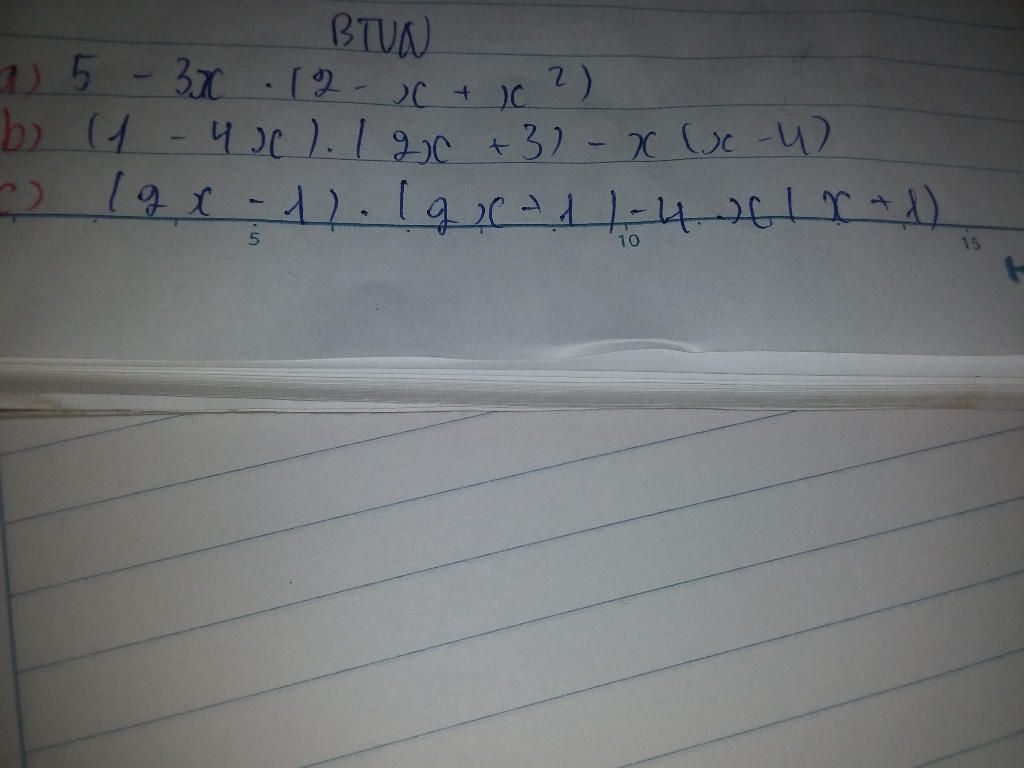 BTVN
a) 5 - 3x . (2 - x + x²)
b) (1 - 4x) . (2x + 3) - x (x - 4)
c) (2x - 1) . (2x + 1) - 4x (x + 1)
5 10 15